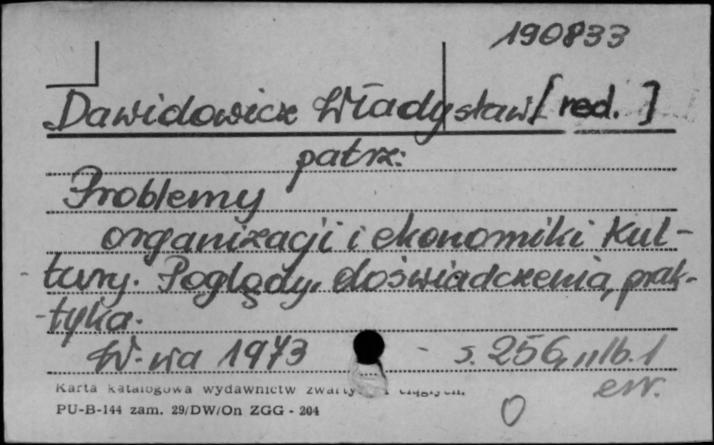 190833
Dawidowicz Władysław [red.]
patrz:
Problemy
organizacji i ekonomiki kul-
tury. Poglądy, doświadczenia, prak-
-tyka.
W-wa 1973 - s. 256, nlb. 1
Karta katalogowa wydawnictw zwartych i ciągłych.
PU-B-144 zam. 29/DW/On ZGG - 204